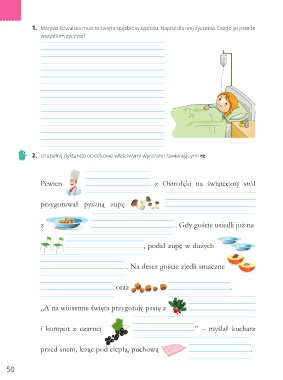 1. Marysia Kowalska musi te święta spędzić w szpitalu. Napisz dla niej życzenia. Czego jej przede
wszystkim życzysz?
2. Uzupełnij dyktando obrazkowe właściwymi wyrazami zawierającymi rz
Pewien z Ostrołęki na świąteczny stół
przygotował pyszną zupę
z . Gdy goście usiedli już na
, podał zupę w dużych
. Na deser goście zjedli smaczne
oraz .
„A na wiosenne święta przygotuję pastę z
i kompot z czarnej ” – myślał kucharz
przed snem, leżąc pod ciepłą, puchową .
50